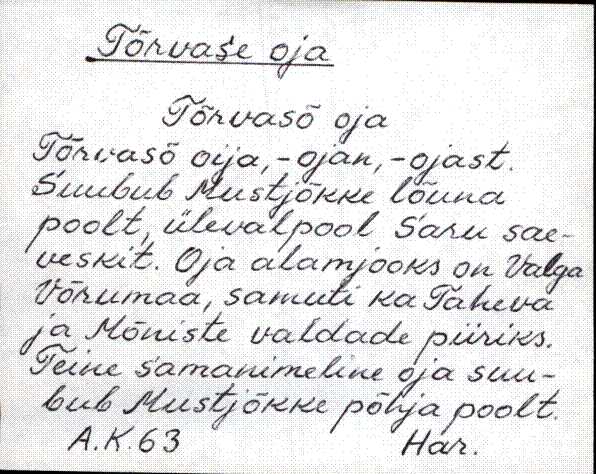 Tõrvase oja
Tõrvasõ oja
Tõrvasõ oija, -ojan, -ojast.
Suubub Mustjõkke lõuna
poolt, ülevalpool Saru sae-
veskit. Oja alamjooks on Valga
Võrumaa, samuti ka Taheva
ja Mõniste valdade piiriks.
Teine samanimeline oja suu-
bub Mustjõkke põhja poolt.
A.K. 63 Har.